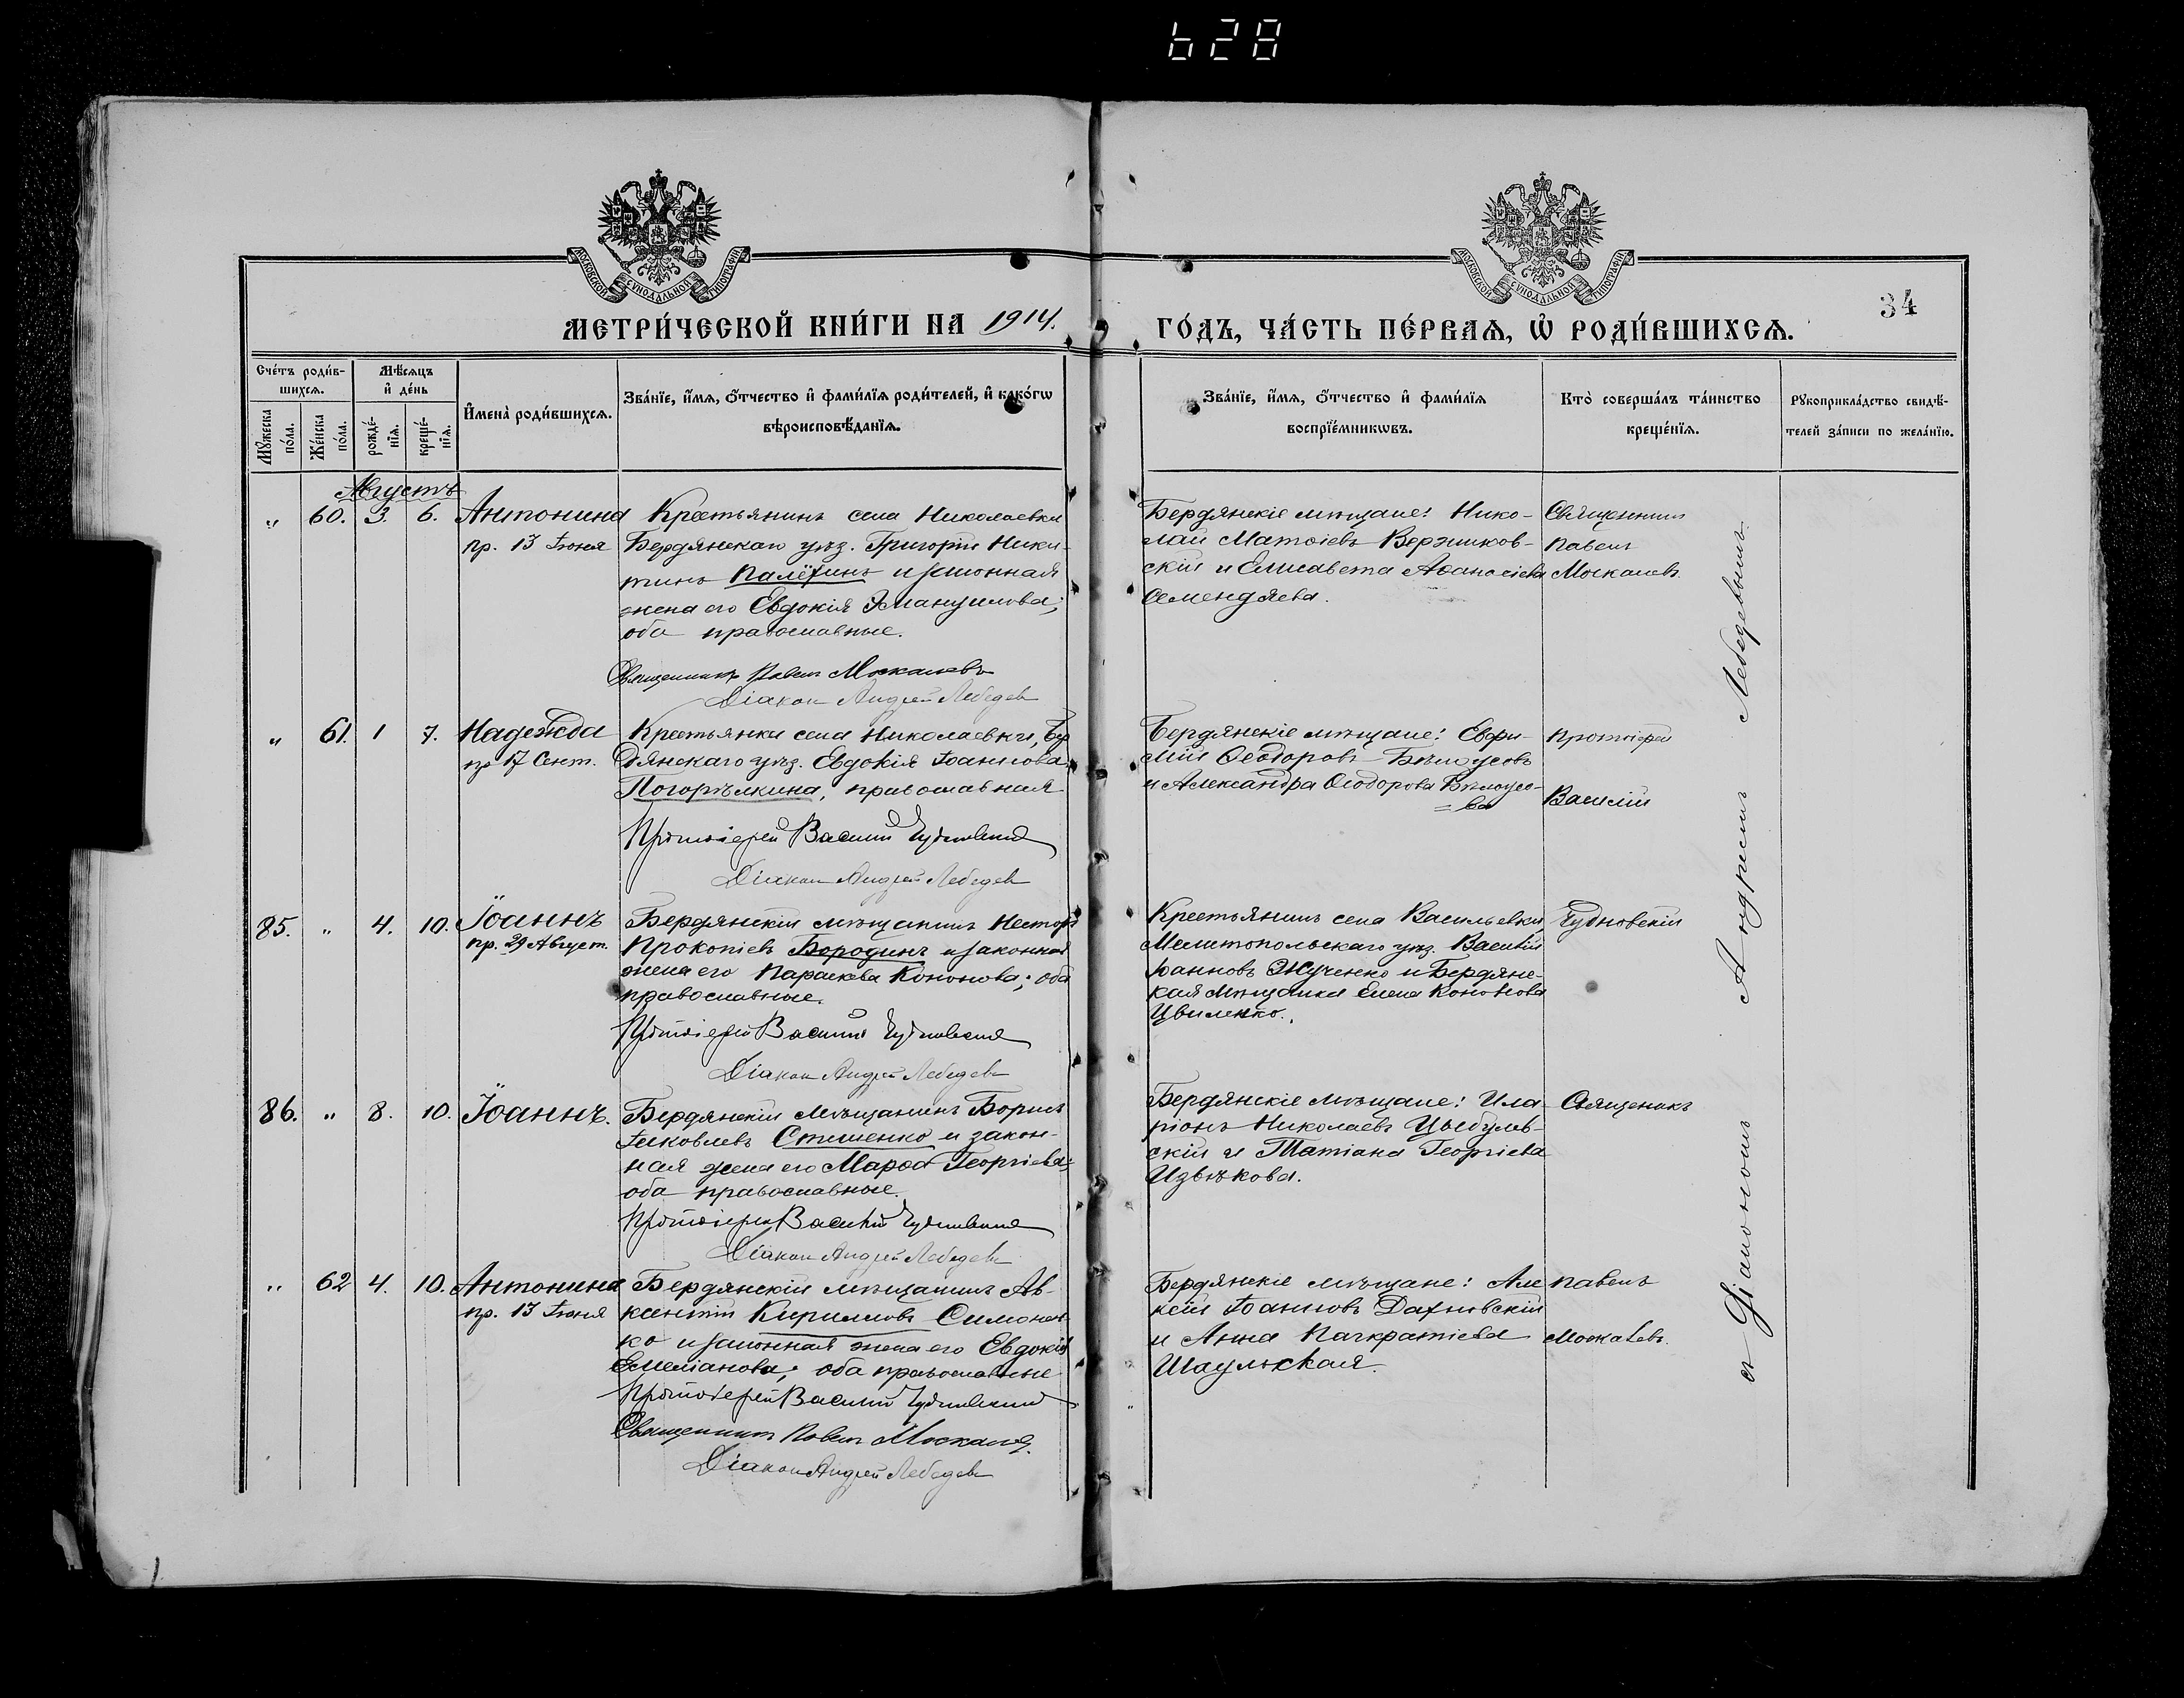 628
МОСКОВСКОЙ СѴНОДАЛЬНОЙ ТИПОГРАФІИ
МОСКОВСКОЙ СѴНОДАЛЬНОЙ ТИПОГРАФІИ
34
МЕТРИ́ЧЕСКОЙ КНИ́ГИ НА 1914.
ГО́ДЪ, ЧА́СТЬ ПЕ́РВАѦ, Ѽ РОДИ́ВШИХСѦ.
Сче́тъ роди́в-
шихсѧ.
Мѣ́сѧцъ
и҆ де́нь
И҆мена̀ роди́вшихсѧ.
Зва́нїе, и҆́мѧ, ѻ҆́тчество и҆ фами́лїѧ роди́телей, и҆ како́гѡ
вѣроисповѣ́данїѧ.
Мꙋжеска
по́ла.
Же́нска
по́ла.
рожде́-
нїѧ.
креще́-
нїѧ.
Зва́нїе, и҆́мѧ, ѻ҆́тчество и҆ фами́лїѧ
воспрїе́мникѡвъ.
Кто̀ соверша́лъ та́инство
креще́нїѧ.
Рꙋкоприкла́дство свидѣ́-
телей за́писи по жела́нїю.
Августъ
„ 60. 3. 6. Антонина
пр. 13 Іюня
Крестьянинъ села Николаевки
Бердянскаго уѣз. Григорій Ники-
тинъ Палёхинъ и законная
жена его Евдокія Эмануилова;
оба православные.
Священникъ Павелъ Москалевъ
Діаконъ Андрей Лебедев
Бердянскіе мѣщане: Нико-
лай Матѳіевъ Вержиков-
скій и Елисавета Аѳанасіева
Семендяева.
Священникъ
Павелъ
Москалевъ.
„ 61. 1 7. Надежда
пр 17 Сент.
Крестьянка села Николаевки, Бер
дянскаго уѣз. Евдокія Іоаннова
Погорѣлкина, православная
Протоіерей Василій Чудновскій
Діаконъ Андрей Лебедев
Бердянскіе мѣщане: Евфи-
мій Ѳеодоровъ Бѣлоусовъ
и Александра Ѳеодорова Бѣлоусо-
=ва
Протоіерей
Василій
85. „ 4. 10. Іоаннъ
пр. 29 Август.
Бердянскій мѣщанинъ Несторъ
Прокопіевъ Бородинъ и законная
жена его Параскева Кононова; оба
православные.
Протоіерей Василій Чудновскій
Діаконъ Андрей Лебедев
Крестьянинъ села Васильевки,
Мелитопольскаго уѣз. Василій
Іоанновъ Жученко и Бердянс-
кая мѣщанка Елена Кононова
Цвиленко.
Чудновскій
86. „ 8. 10. Іоаннъ.
Бердянскій мѣщанинъ Борисъ
Іаковлевъ Стешенко и закон-
ная жена его Марѳа Георгіева;
оба православные.
Протоіерей Василій Чудновскій
Діаконъ Андрей Лебедев
Бердянскіе мѣщане: Ила-
ріонъ Николаевъ Цыбуль-
скій и Татіана Георгіева
Извѣкова.
Священикъ
„ 62 4. 10. Антонина
пр. 13 Іюня
Бердянскій мѣщанинъ Ав-
ксентій Кирилловъ Симонен-
ко и законная жена его Евдокія
Емеліанова; оба православные
Протоіерей Василій Чудновскій
Священникъ Павелъ Москалев.
Діаконъ Андрей Лебедев
Бердянскіе мѣщане: Але
ксій Іоанновъ Дахновскій
и Анна Панкратіева
Шаульская.
Павелъ
Москалевъ.
съ Діакономъ Андреемъ Лебедевымъ